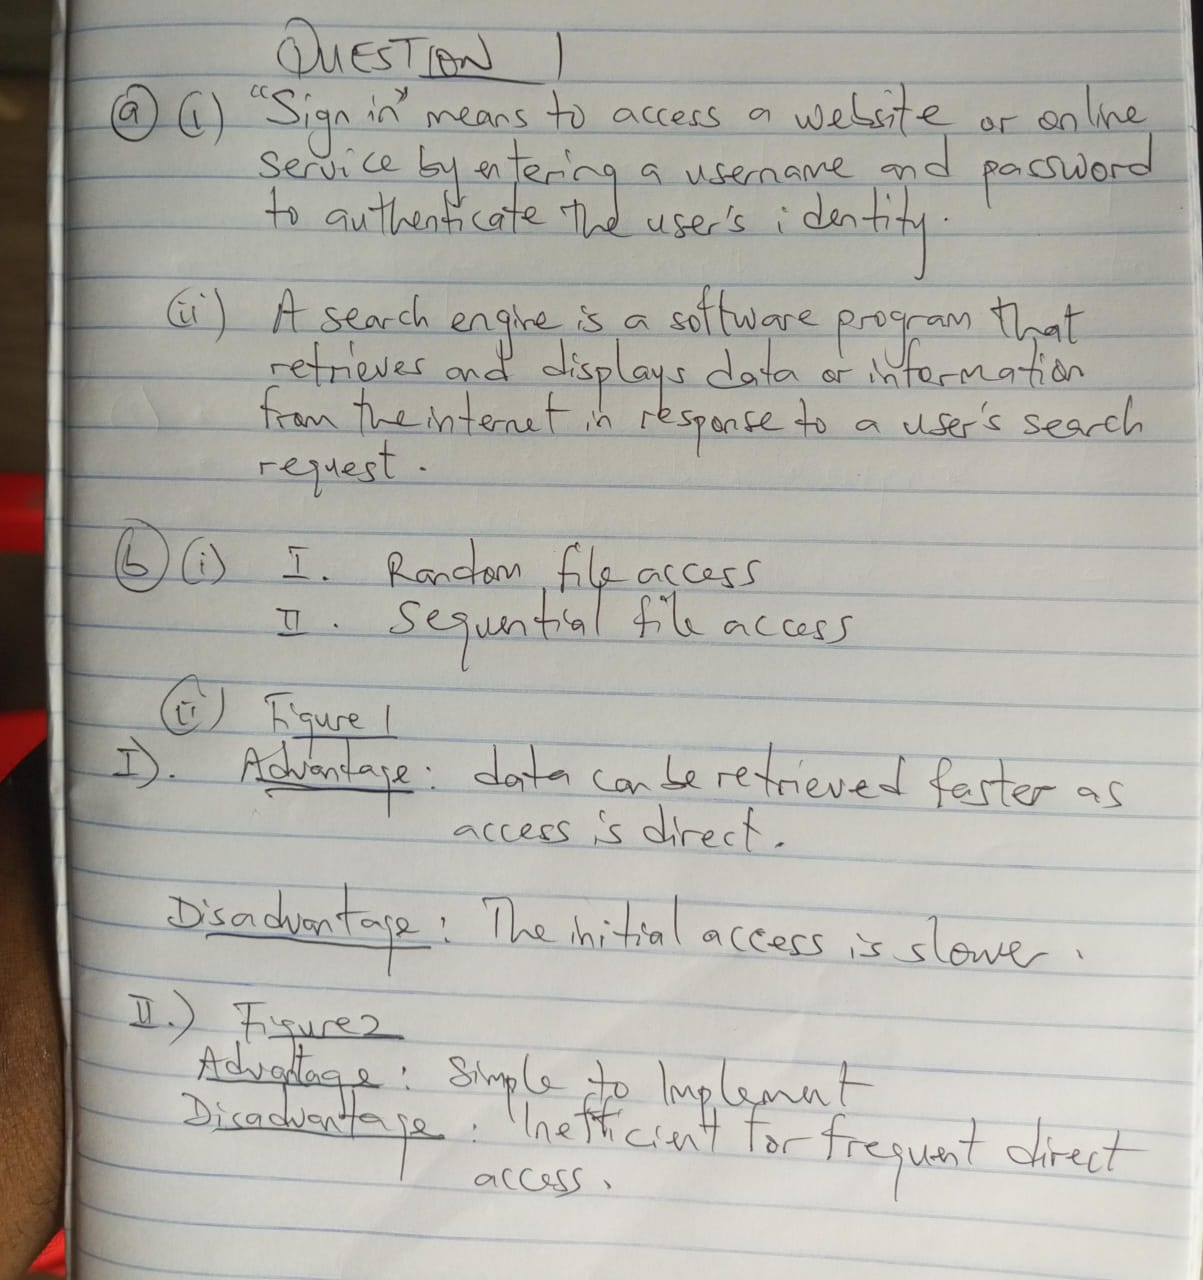 QUESTION 1
(a) (i) "Sign in" means to access a website or online
service by entering a username and password
to authenticate the user's identity.
(ii) A search engine is a software program that
retrieves and displays data or information
from the internet in response to a user's search
request.
(b) (i) I. Random file access
II. Sequential file access
(ii) Figure 1
I). Advantage: data can be retrieved faster as
access is direct.
Disadvantage: The initial access is slower.
II.) Figure 2
Advantage: Simple to Implement
Disadvantage: Inefficient for frequent direct
access.